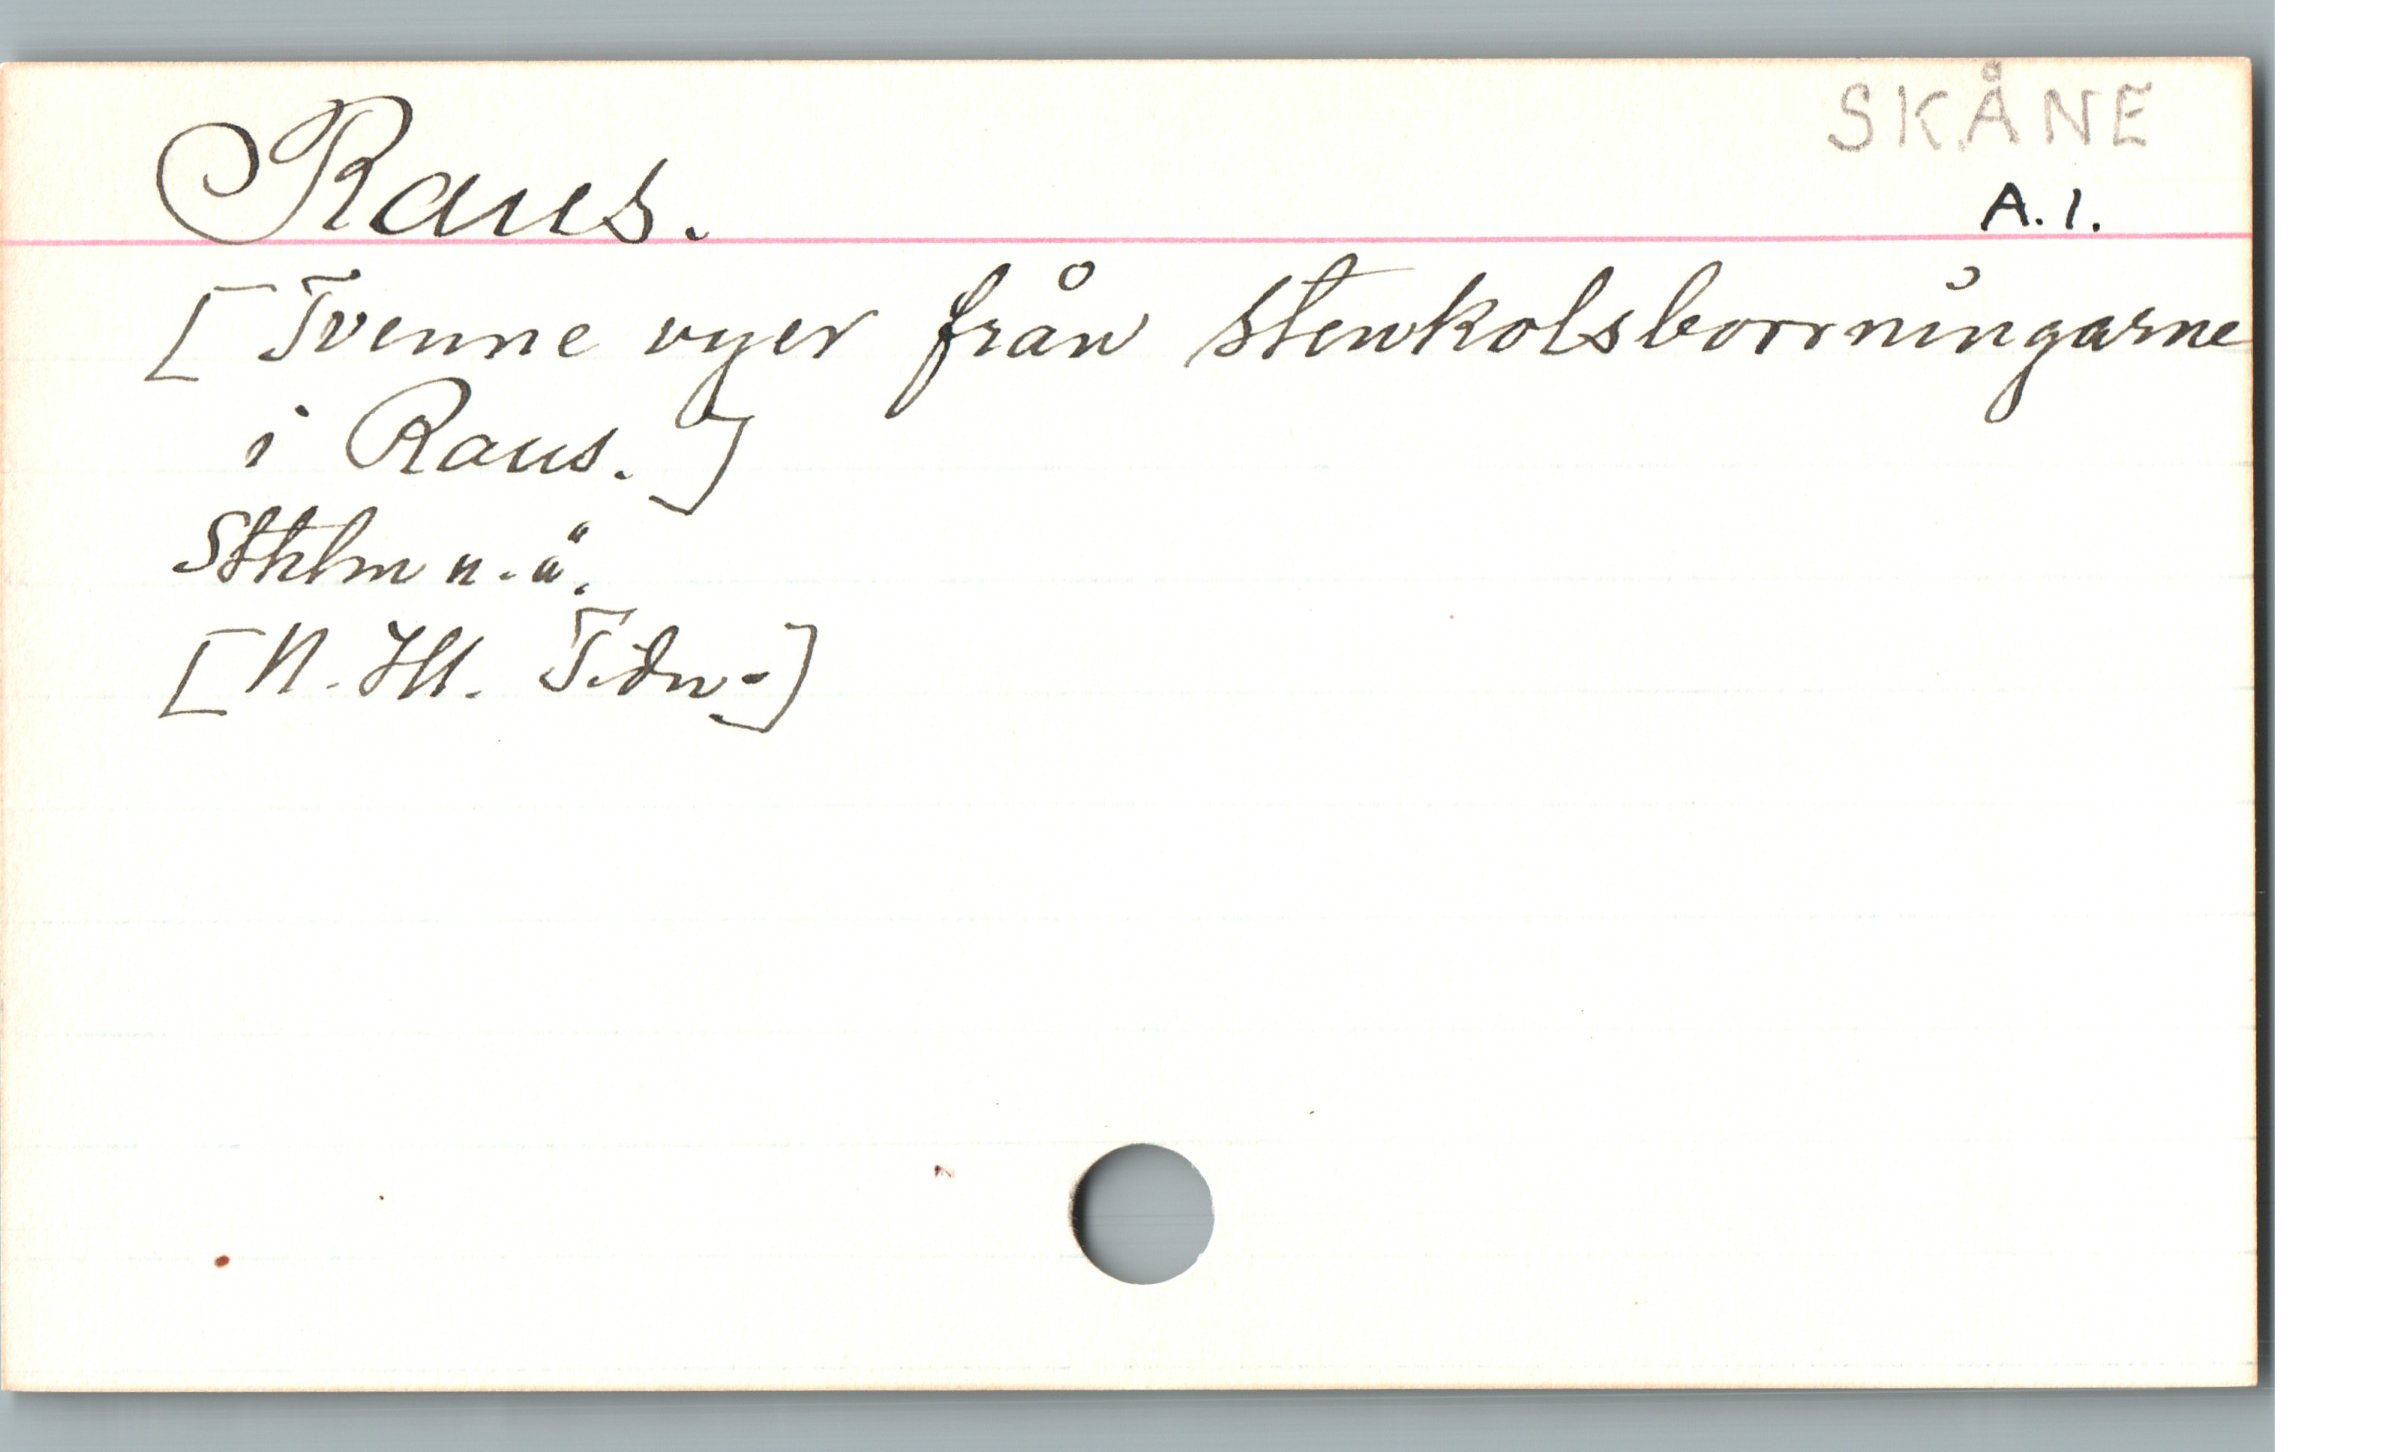 SKÅNE
Raus.
A. 1.
[Tvenne vyer från stenkolsborrningarne
i Raus.]
Sthlm u. å.
[N. Ill. Tidn.]